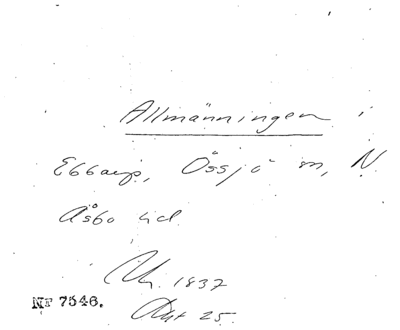 Allmänningen i
Ebbarp, Össjö sn, N.
Åsbo hd.
Nr. 1837
Akt 25.
NF 7546.